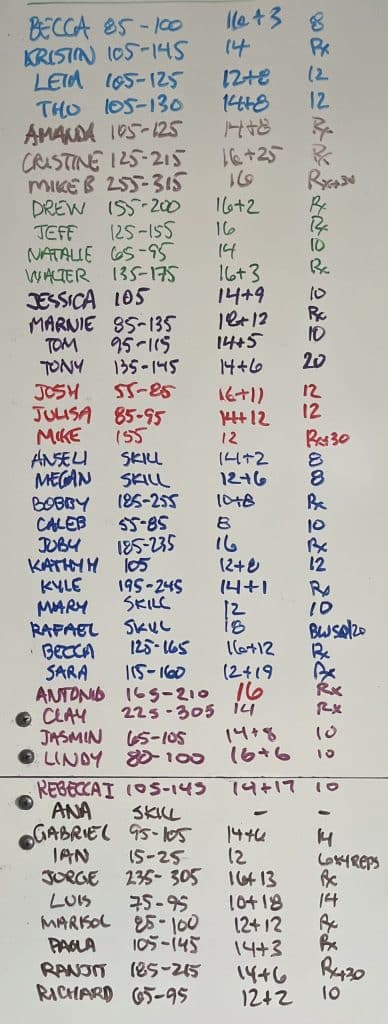 BECCA 85-100 16+3 8
KRISTIN 105-145 14 Rx
LETA 105-125 12+8 12
THO 105-130 14+8 12
AMANDA 105-125 14+8 Rx
CRISTINE 125-215 16+25 Rx
MIKE B 255-315 16 Rx+30
DREW 155-200 16+2 Rx
JEFF 125-155 16 Rx
NATALIE 65-95 14 10
WALTER 135-175 16+3 Rx
JESSICA 105 14+9 10
MARNIE 85-135 12+12 Rx
TOM 95-115 14+5 10
TONY 135-145 14+6 20
JOSH 55-85 16+11 12
JULISA 85-95 14+12 12
MIKE 155 12 Rx+30
ANSELI SKILL 14+2 8
MEGAN SKILL 12+6 8
BOBBY 185-255 10+8 Rx
CALEB 55-85 8 10
JOBY 185-235 16 Rx
KATHY H 105 12+8 12
KYLE 195-245 14+1 Rx
MARY SKILL 12 10
RAFAEL SKILL 18
BECCA 125-165 16+12 Rx
SARA 115-160 12+19 Rx
ANTONIO 165-210 16 Rx
CLAY 225-305 14 Rx
JASMIN 65-105 14+8 10
LINDY 80-100 16+6 10
REBECCA I 105-145 14+17 10
ANA SKILL - -
GABRIEL 95-105 14+6 14
IAN 15-25 12 REPS
JORGE 235-305 16+13 Rx
LUIS 75-95 10+18 14
MARISOL 85-100 12+12 Rx
PAOLA 105-145 14+3 Rx
RANJIT 185-215 14+6 Rx+30
RICHARD 65-95 12+2 10